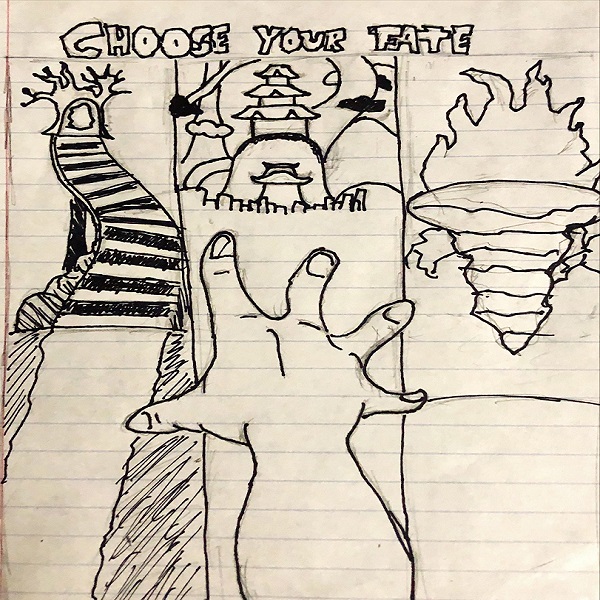 CHOOSE YOUR FATE